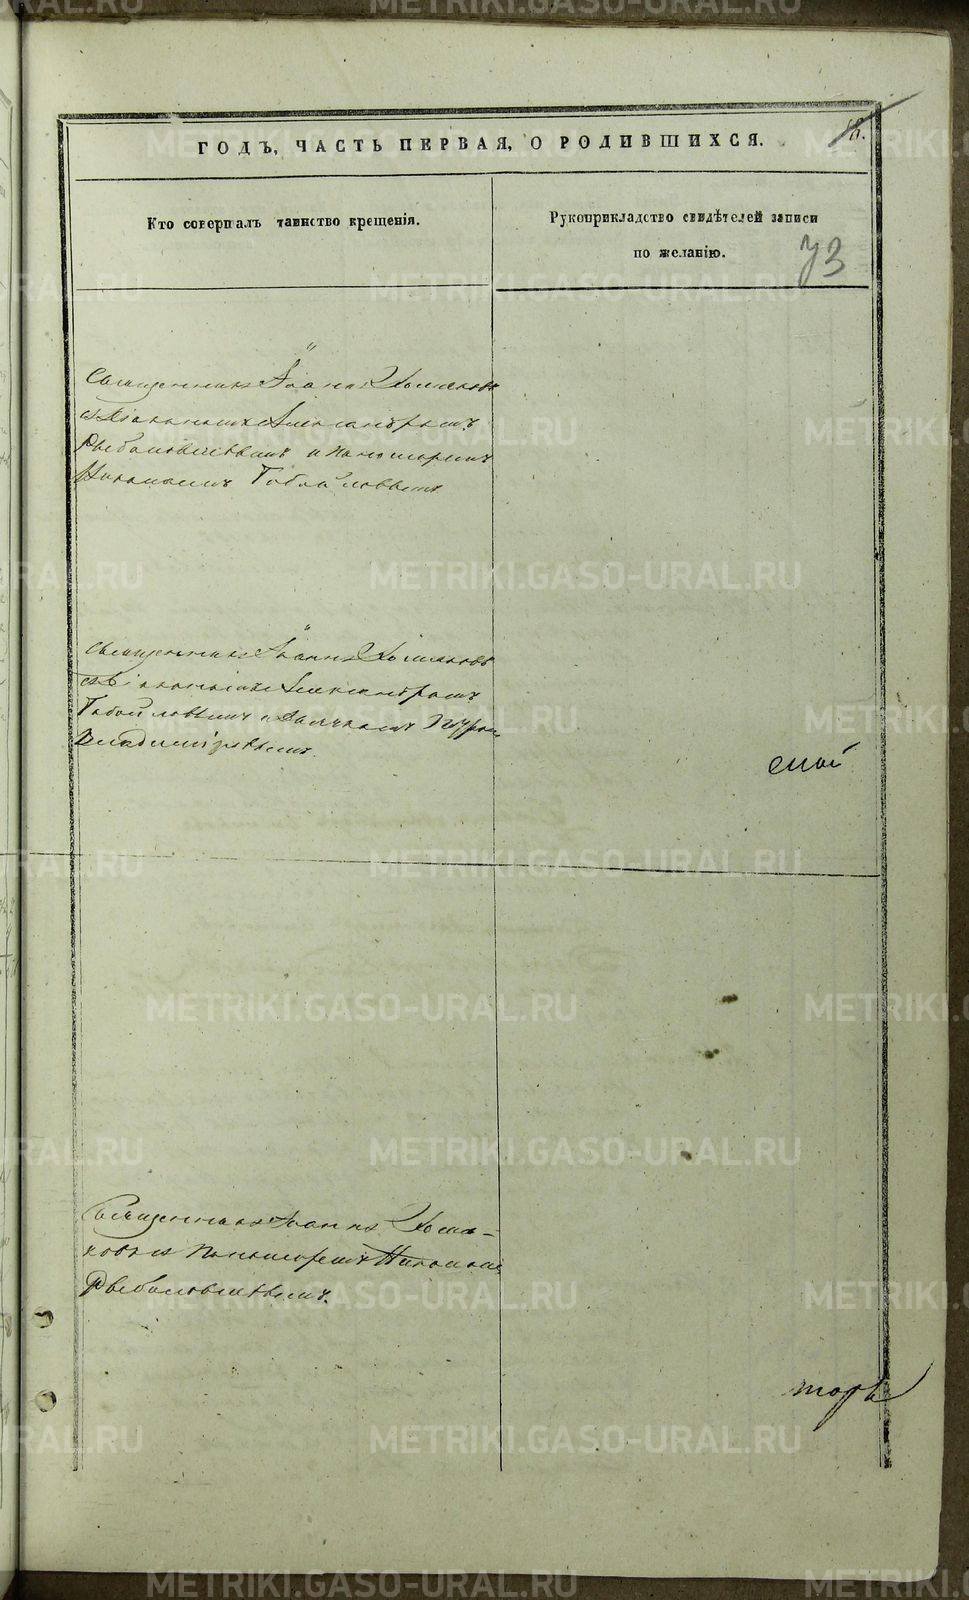 ГОДЪ, ЧАСТЬ ПЕРВАЯ, О РОДИВШИХСЯ.
18.
Кто совершалъ таинство крещенія.
Рукоприкладство свидѣтелей записи
по желанію.
73
Священникъ Іоаннъ Хомяковъ
съ Діакономъ Александромъ
Рыболовлевымъ и пономаремъ
Николаемъ
Священникъ Іоаннъ Хомяковъ
съ Діакономъ Александромъ
и Дьячкомъ
Владиміровымъ.
Священникъ Іоаннъ Хомя-
ковъ съ Пономаремъ Николаемъ
Рыболовлевымъ.
METRIKI.GASO-URAL.RU